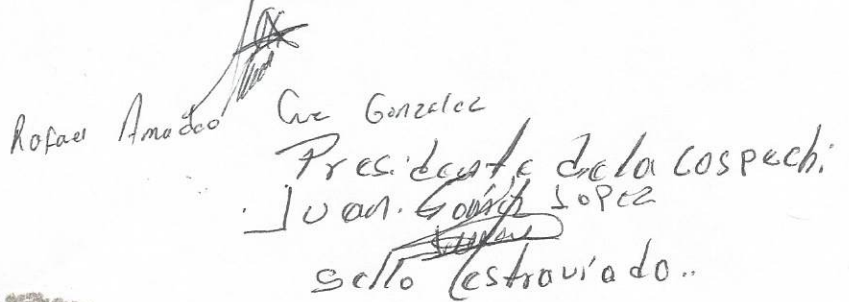 Rafael Amadeo Cuc Gonzalez
Presidente de la cospechi
Juan. García Lopez
sello estraviado..